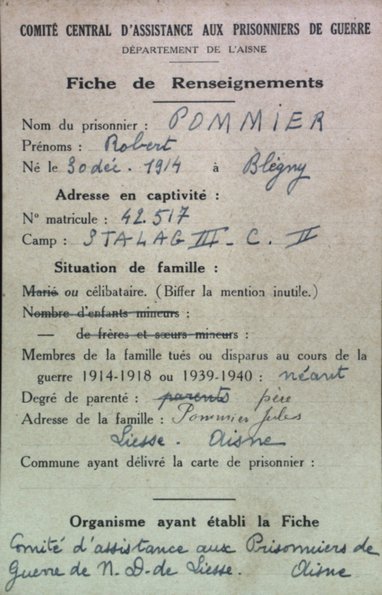 COMITÉ CENTRAL D'ASSISTANCE AUX PRISONNIERS DE GUERRE
DÉPARTEMENT DE L'AISNE
Fiche de Renseignements
Nom du prisonnier : POMMIER
Prénoms : Robert
Né le 30 déc. 1914 à Blégny
Adresse en captivité :
N° matricule : 42.517
Camp : STALAG III - C. II
Situation de famille :
Marié ou célibataire. (Biffer la mention inutile.)
Nombre d'enfants mineurs :
— de frères et sœurs mineurs :
Membres de la famille tués ou disparus au cours de la
guerre 1914-1918 ou 1939-1940 : néant
Degré de parenté : parents père
Adresse de la famille : Pommier Jules
Liesse. Aisne
Commune ayant délivré la carte de prisonnier :
Organisme ayant établi la Fiche
Comité d'assistance aux Prisonniers de
Guerre de N. D. de Liesse. Aisne.